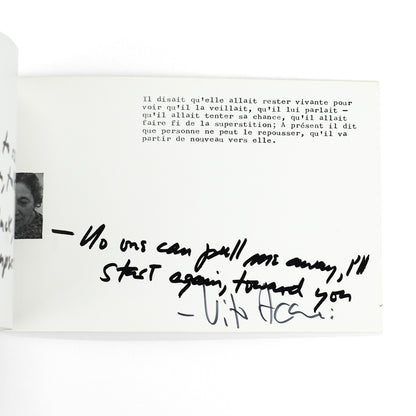 Il disait qu'elle allait rester vivante pour
voir qu'il la veillait, qu'il lui parlait —
qu'il allait tenter sa chance, qu'il allait
faire fi de la superstition; À présent il dit
que personne ne peut le repousser, qu'il va
partir de nouveau vers elle.
— No one can pull me away, I'll
start again, toward you
— Vito Acconci